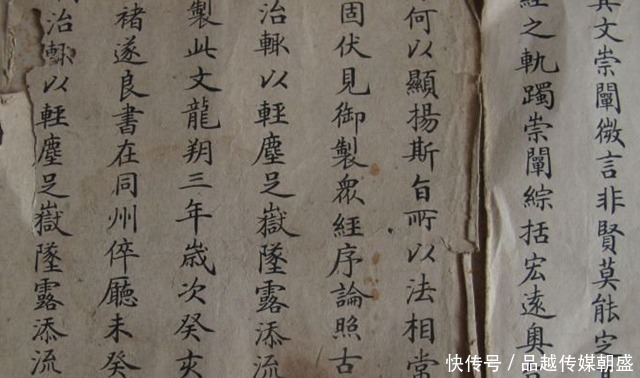 其文崇闡微言非賢莫能定
經之軌躅崇闡綜括宏遠奧
何以顯揚斯旨所以法相常
固伏見御製眾經序論照古
治輙以輕塵足嶽墜露添流
製此文龍朔三年歲次癸亥
褚遂良書在同州倅廳未癸
治輙以輕塵足嶽墜露添流
快传号 / 品越传媒朝盛